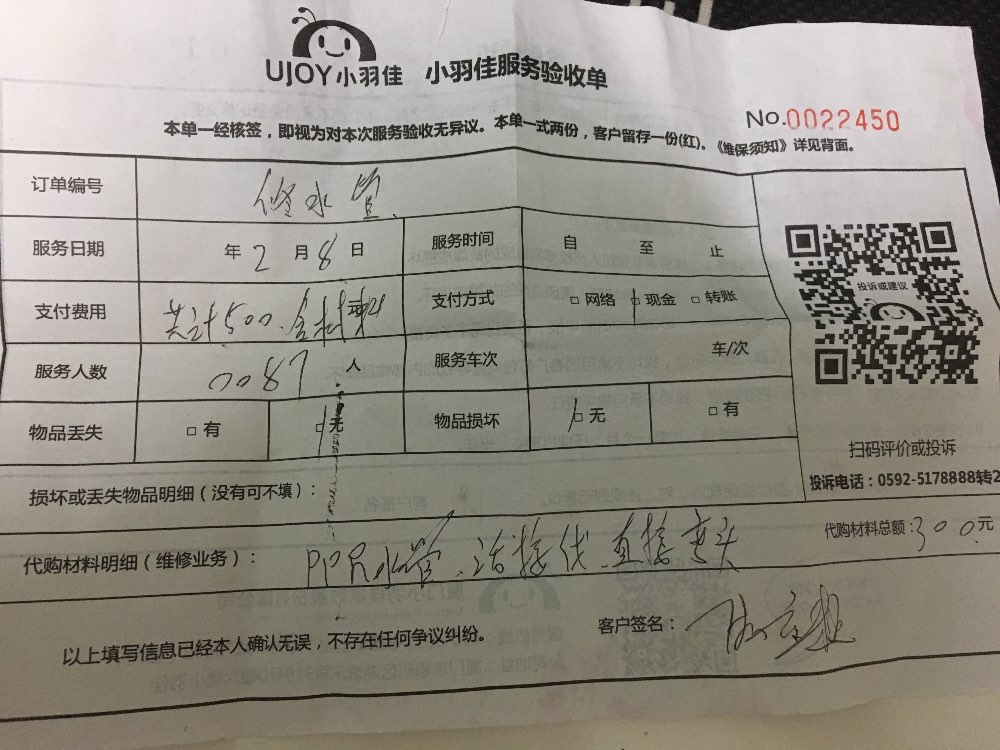 UJOY小羽佳 小羽佳服务验收单
No.0022450
本单一经核签，即视为对本次服务验收无异议。本单一式两份，客户留存一份(红)。《维保须知》详见背面。
订单编号 修水管
服务日期 年2月8日 服务时间 自 至 止
支付费用 共计500.含材料 支付方式 □网络 □现金 □转账
服务人数 0087人 服务车次 车/次
物品丢失 □有 □无 物品损坏 □无 □有
投诉或建议
扫码评价或投诉
投诉电话：0592-5178888转2
损坏或丢失物品明细（没有可不填）：
代购材料明细（维修业务）： PPR水管、活接头、直接弯头 代购材料总额：300.元
以上填写信息已经本人确认无误，不存在任何争议纠纷。 客户签名：